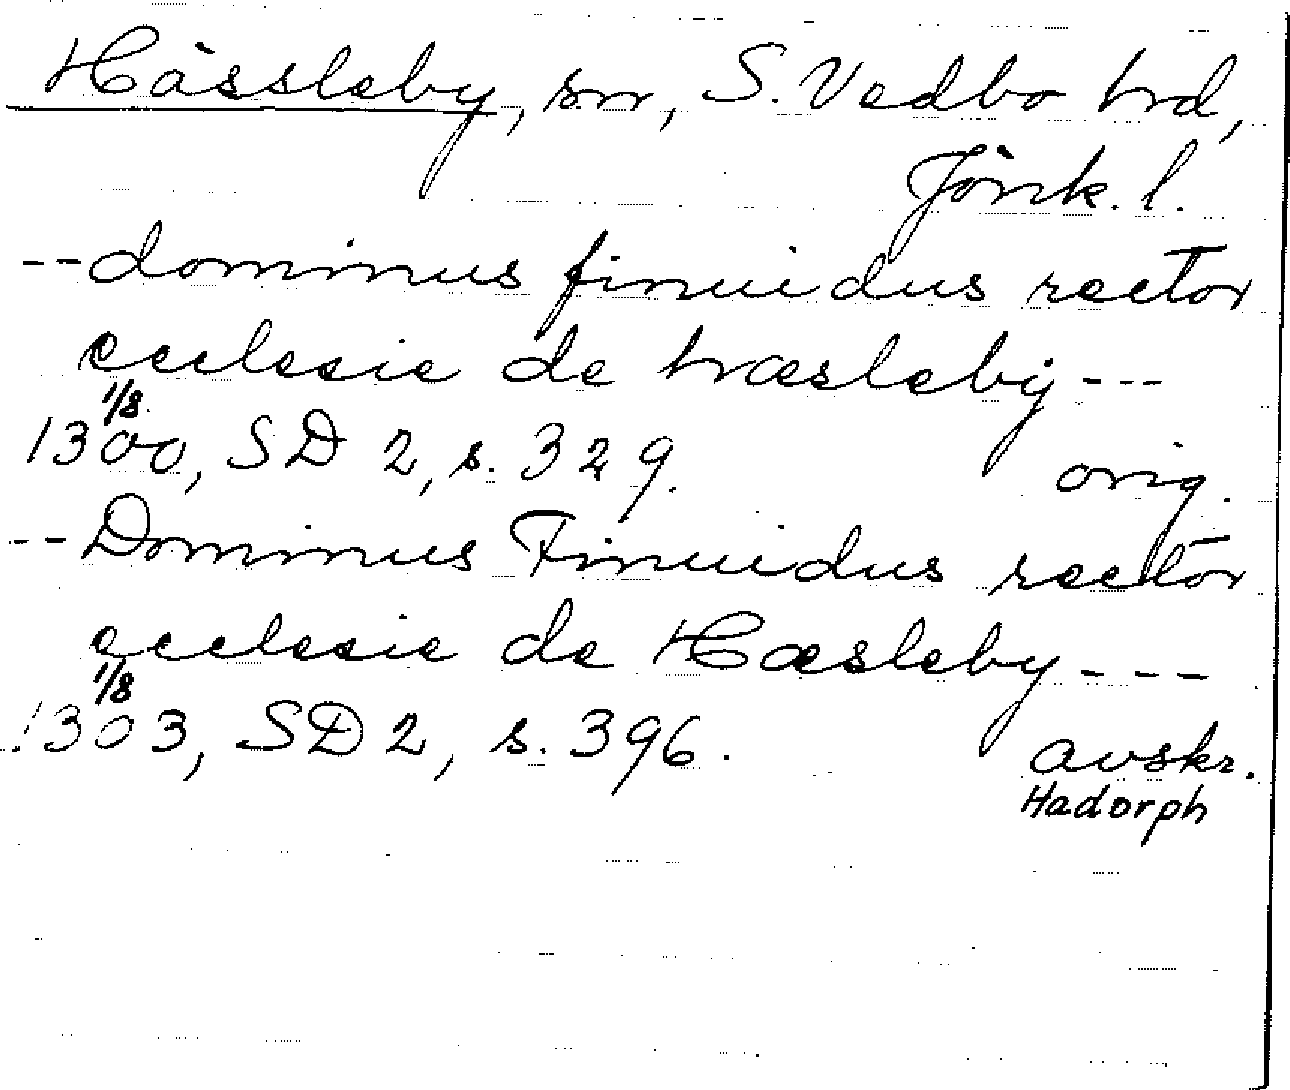 Hässleby, sn, S. Vedbo hrd,
Jönk. l.
-- dominus finuidus rector
ecclesie de hæsleby ---
1/8
1300, SD 2, s. 329. orig.
-- Dominus Finuidus rector
ecclesie de Hæsleby ---
1/8
1303, SD 2, s. 396. avskr.
Hadorph